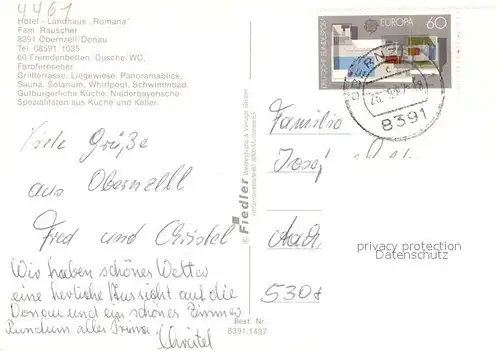 4461
Hotel - Landhaus „Romana"
Fam. Rauscher
8391 Obernzell/Donau
Tel. 08591/1035
60 Fremdenbetten, Dusche/WC,
Farbfernseher
Grillterrasse, Liegewiese, Panoramablick,
Sauna, Solarium, Whirlpool, Schwimmbad.
Gutbürgerliche Küche. Niederbayerische
Spezialitäten aus Küche und Keller.
Viele Grüße
aus Obernzell
Fred und Christel
Wir haben schönes Wetter
eine herrliche Aussicht auf die
Donau und ein schönes Zimmer
Rundum alles Prima
Christel
Best. Nr.
8391/1497
© Fiedler
DEUTSCHE BUNDESPOST
EUROPA
60
8391
Familie
Josef
privacy protection
Datenschutz